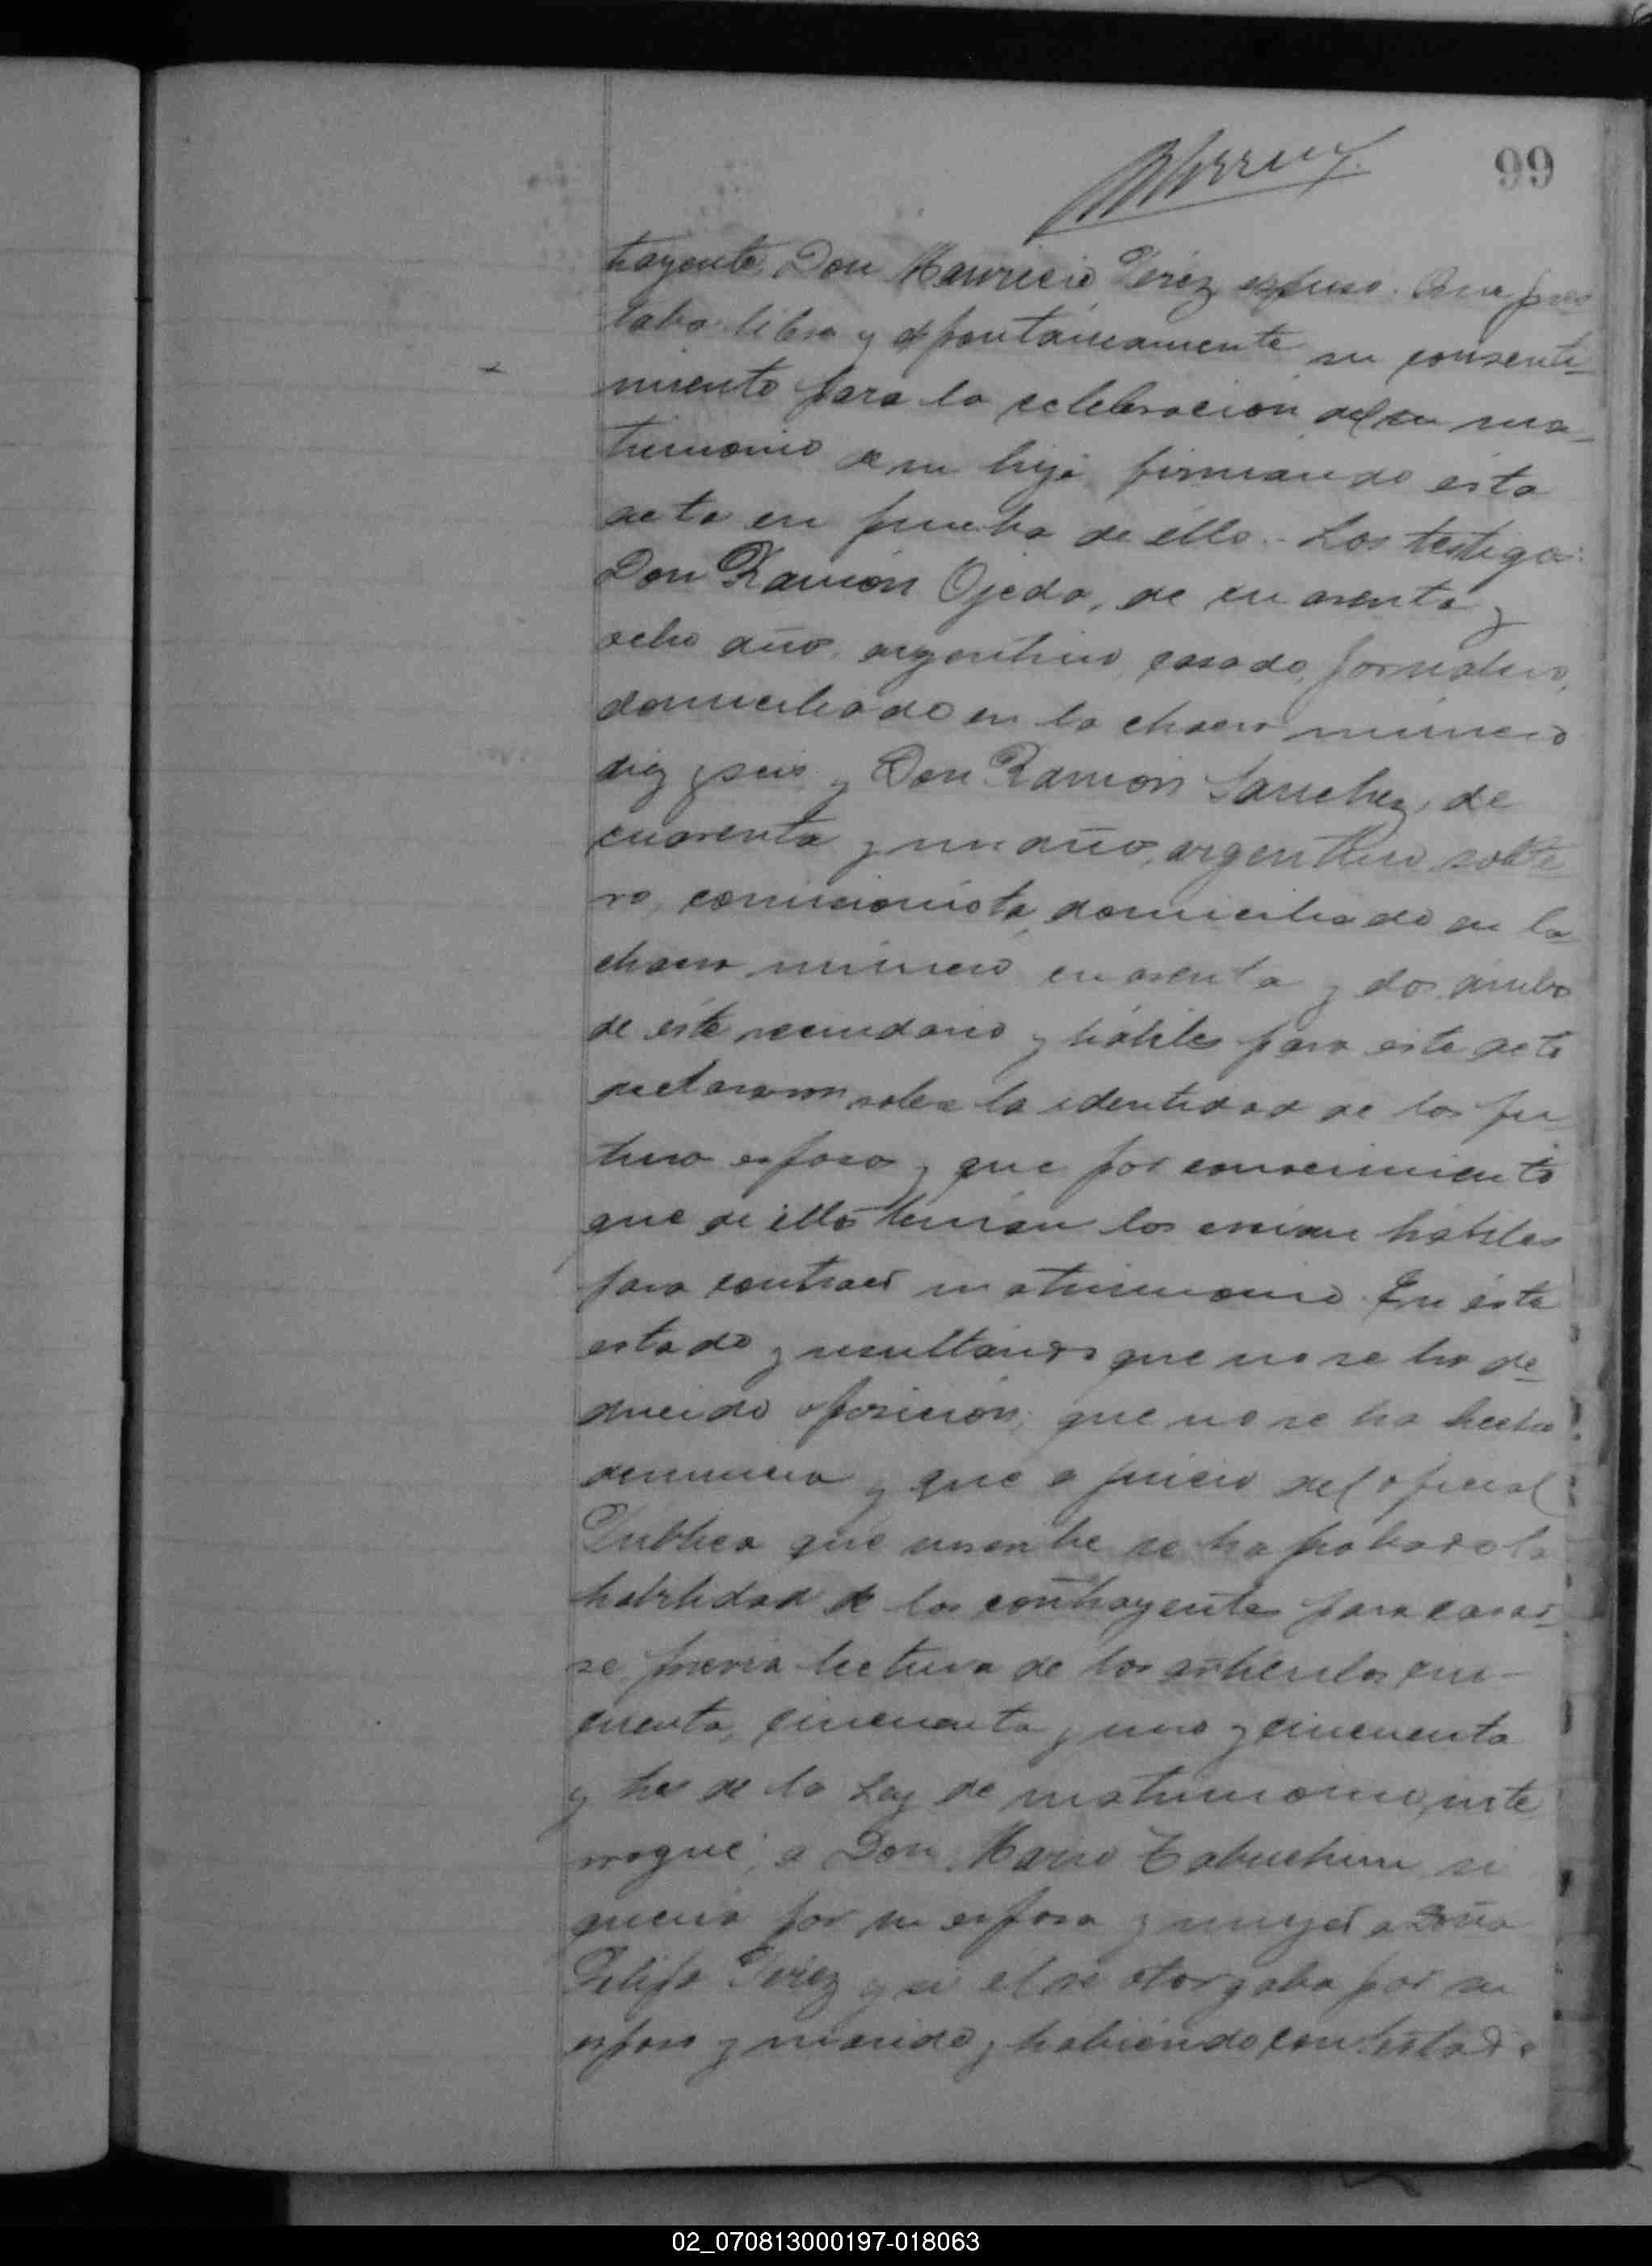 99
trayente, Don Mauricio Pérez expuso: Que pres
taba libre y espontáneamente su consenti-
miento para la celebración del ma-
trimonio de su hija, firmando ésta
acta en prueba de éllo.- Los testigos:
Don Ramón Ojeda, de cuarenta y
ocho años, argentino, casado, jornalero,
domiciliado en la chacra número
diez y seis, y Don Ramón Sanchez, de
cuarenta y un años, argentino, solte
ro, comisionista, domiciliado en la
chacra número cuarenta y dos, ambos
de éste vecindario y hábiles para este acto
declararon sobre la identidad de los fu
turos esposos y que por conocimiento
que de éllos tenían los creían hábiles
para contraer matrimonio. En éste
estado y resultando que no se ha de-
ducido oposición, que no se ha hecho
denuncia y que a juicio del oficial
Público que suscribe se ha probado la
habilidad de los contrayentes para casar-
se, previa lectura de los artículos cin-
cuenta, cincuenta y uno y cincuenta
y tres de la Ley de matrimonio, inte
rrogué, a Don Mario Tabuchini si
quería por su esposa y mujer a Doña
Felipa Pérez y si el se otorgaba por su
esposo y marido, y habiendo contestado
02_070813000197-018063